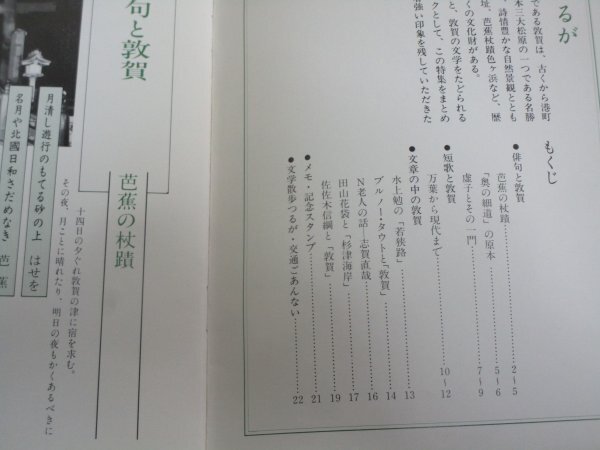 るが
である敦賀は、古くから港町
本三大松原の一つである名勝
、詩情豊かな自然景観ととも
址、芭蕉杖蹟色ヶ浜など、歴
くの文化財がある。
と、敦賀の文学をたどられる
クとして、この特集をまとめ
強い印象を残していただきた
もくじ
●俳句と敦賀
芭蕉の杖蹟 2〜5
「奥の細道」の原本 5〜6
虚子とその一門 7〜9
●短歌と敦賀
万葉から現代まで 10〜12
●文章の中の敦賀
水上勉の「若狭路」 13
ブルノー・タウトと「敦賀」 14
N老人の話―志賀直哉 16
田山花袋と「杉津海岸」 17
佐佐木信綱と「敦賀」 19
●メモ・記念スタンプ 21
●文学散歩つるが・交通ごあんない 22
句と敦賀
芭蕉の杖蹟
月清し遊行のもてる砂の上 はせを
名月や北國日和さだめなき 芭蕉
十四日の夕ぐれ敦賀の津に宿を求む。
その夜、月ことに晴れたり、明日の夜もかくあるべきに